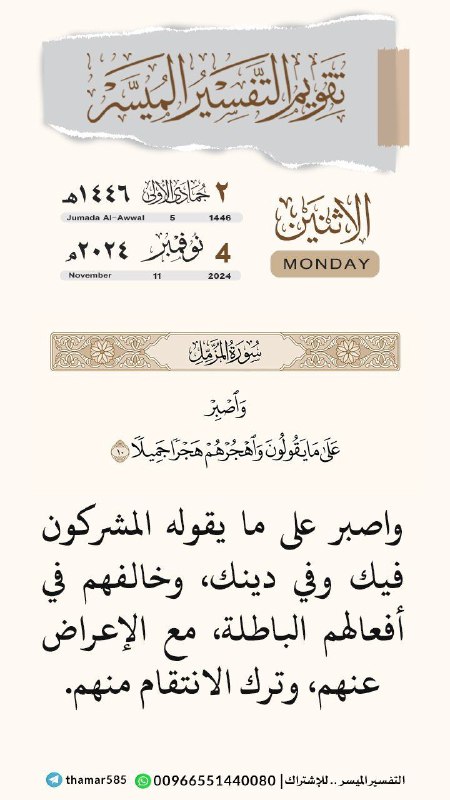 تقويم التفسير الميسر
الاثنين
MONDAY
٢ جمادى الأولى ١٤٤٦هـ
Jumada Al-Awwal 5 1446
4 نوفمبر ٢٠٢٤م
November 11 2024
سُورَةُ المُزَّمِّل
وَٱصۡبِرۡ
عَلَىٰ مَا يَقُولُونَ وَٱهۡجُرۡهُمۡ هَجۡرٗا جَمِيلٗا ١٠
واصبر على ما يقوله المشركون
فيك وفي دينك، وخالفهم في
أفعالهم الباطلة، مع الإعراض
عنهم، وترك الانتقام منهم.
التفسير الميسر .. للإشتراك | 00966551440080 thamar585